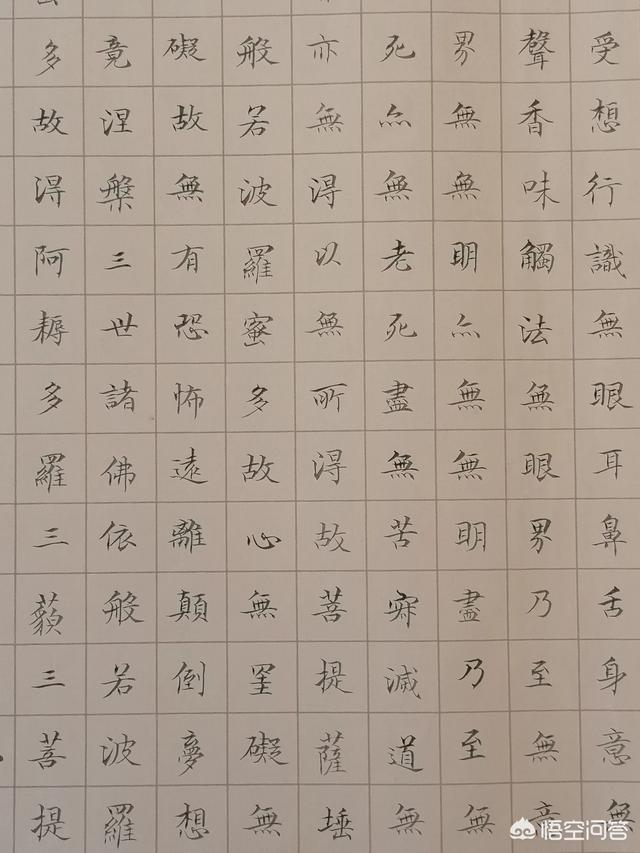 受想行識無眼耳鼻舌身意無
聲香味觸法無眼界乃至無意
界無無明亦無無明盡乃至無
死亦無老死盡無苦寂滅道無
亦無得以無所得故菩提薩埵
般若波羅蜜多故心無罣礙無
礙故無有恐怖遠離顛倒夢想
竟涅槃三世諸佛依般若波羅
多故得阿耨多羅三藐三菩提
悟空问答